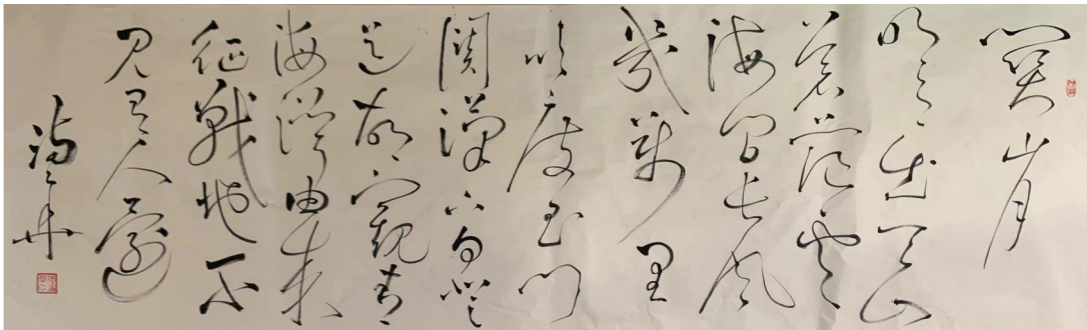 關山月
明月出天山
蒼茫雲
海間長風
幾萬里
吹度玉門
關漢下白登
道胡窺青
海灣由來
征戰地不
見有人還